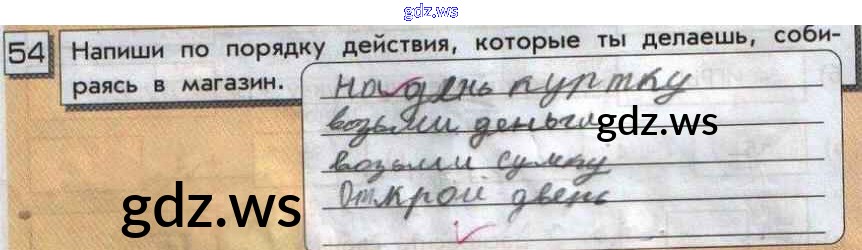 gdz.ws
54 Напиши по порядку действия, которые ты делаешь, соби-
раясь в магазин.
Надень куртку
возьми деньги
gdz.ws
возьми сумку
gdz.ws
Открой дверь